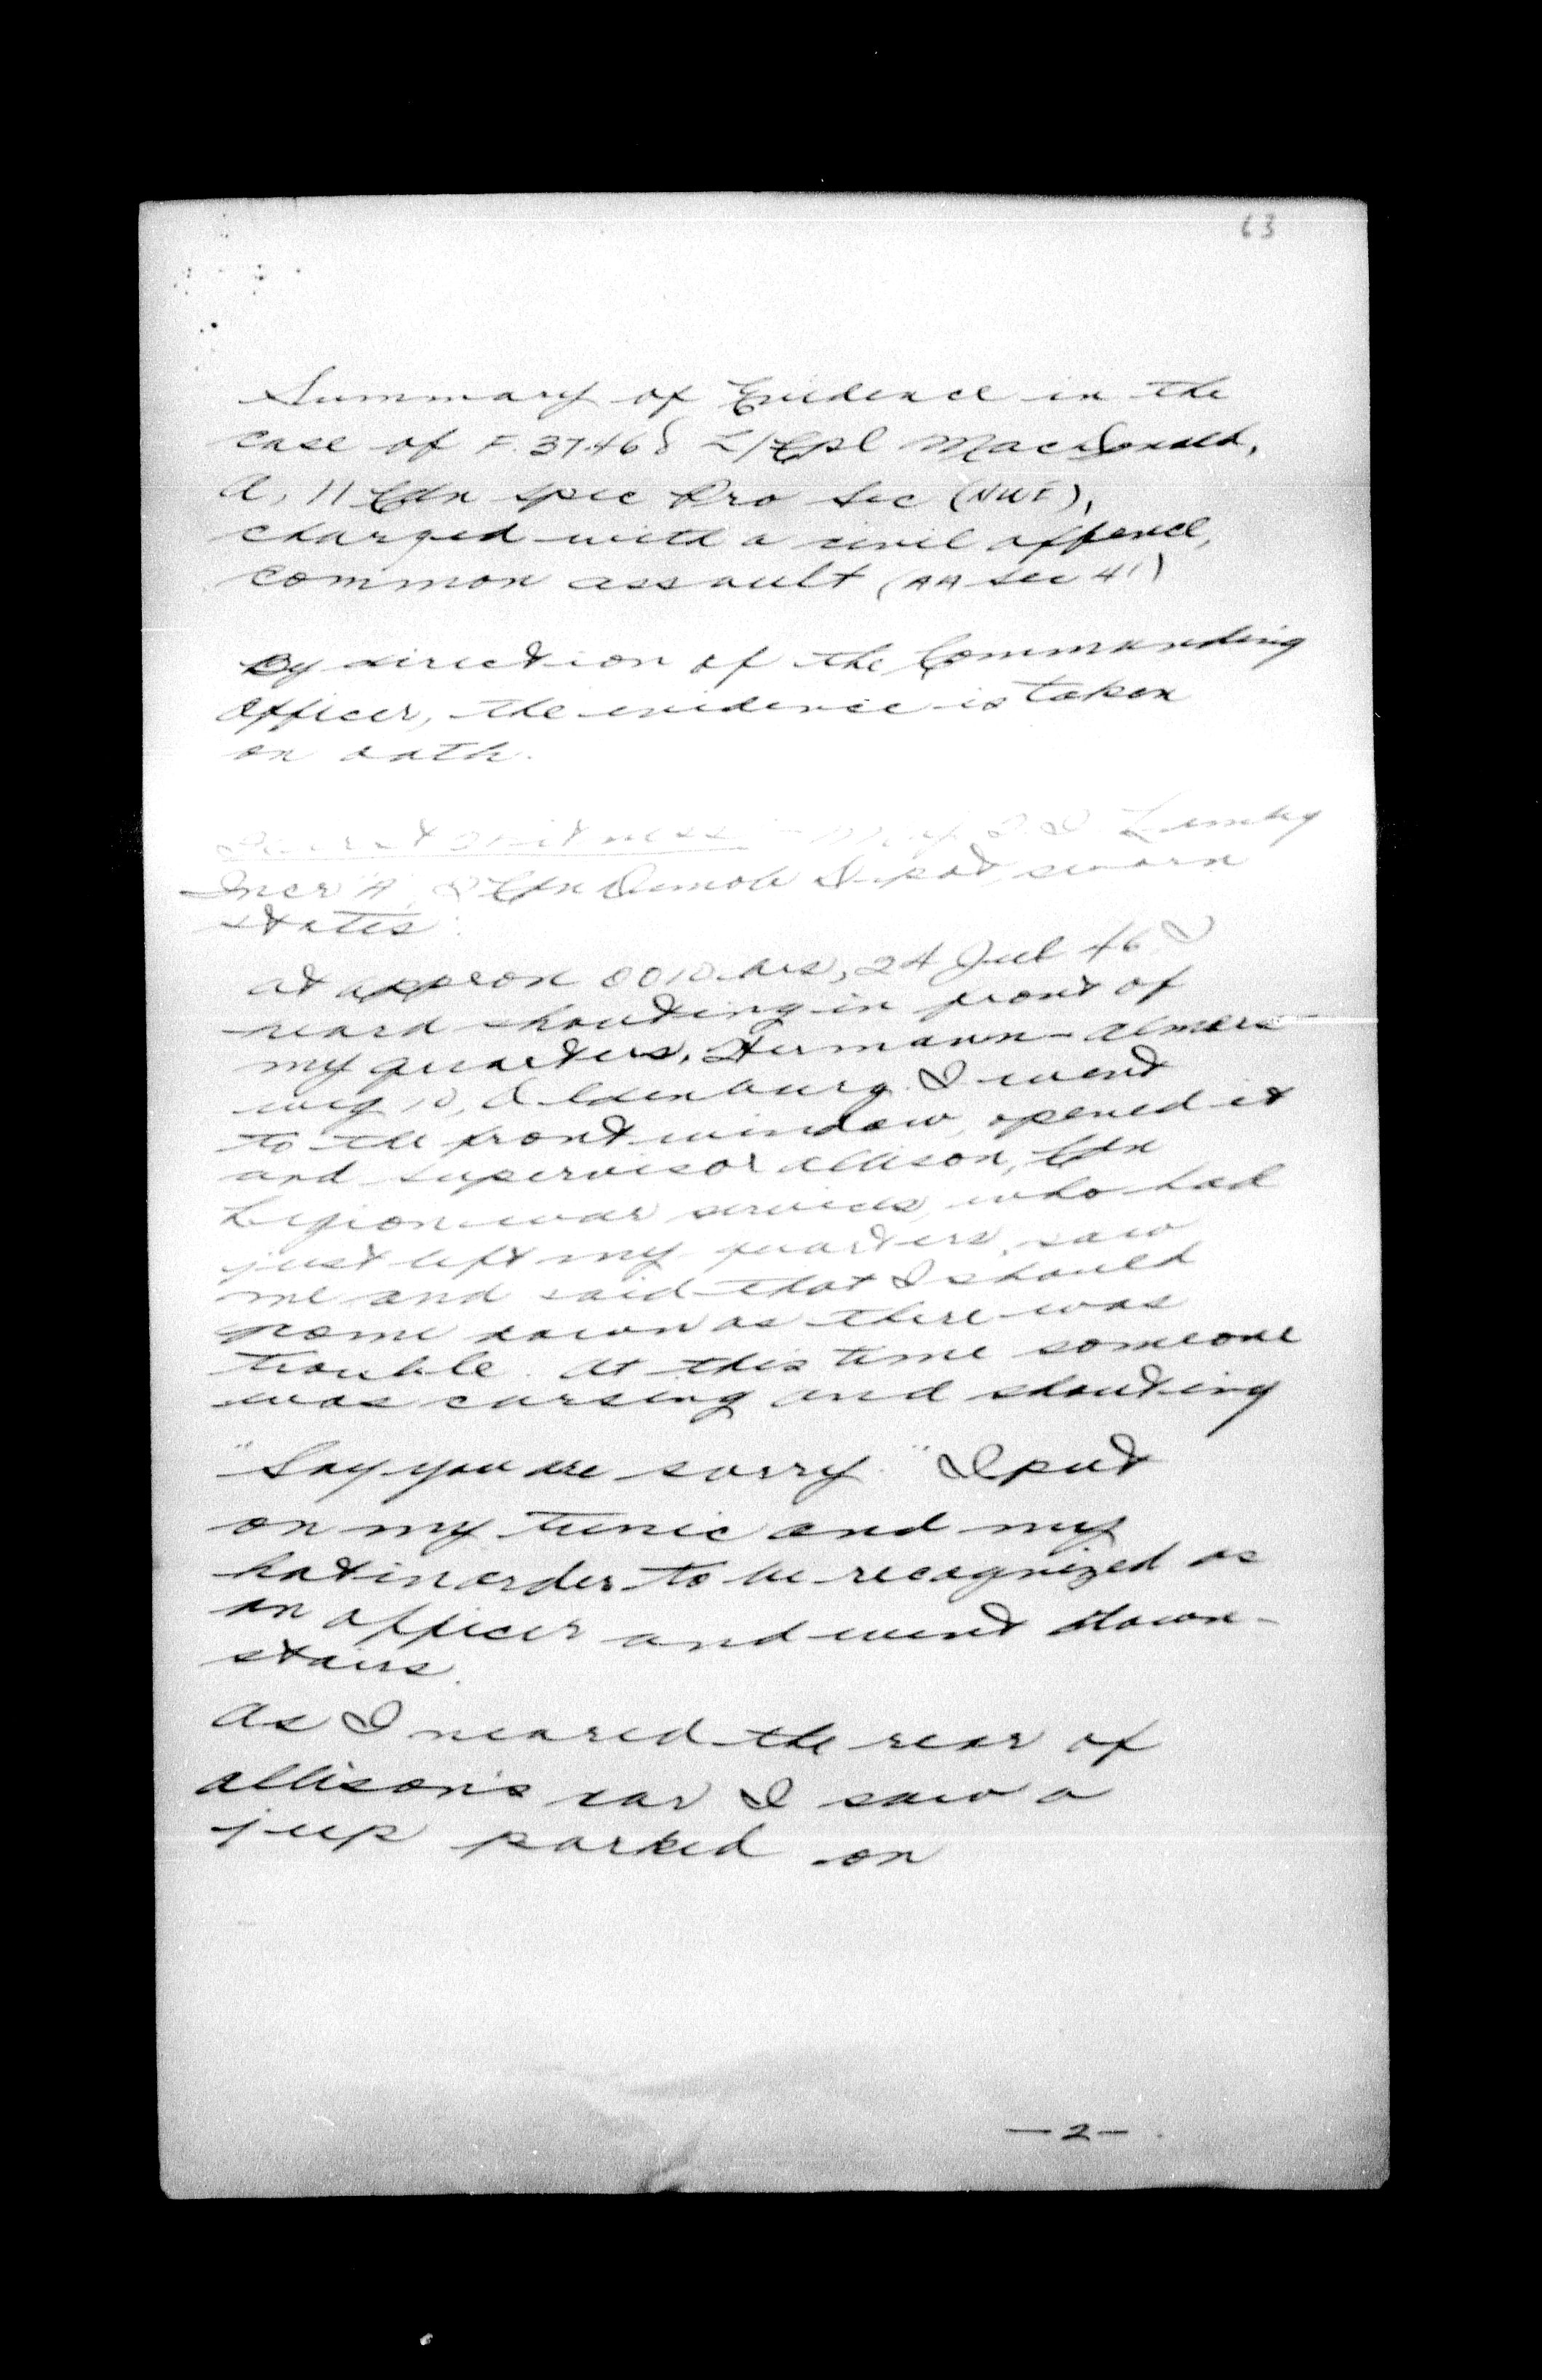 63
Summary of Evidence in the
case of F. 37468 L/Cpl MacDonald,
A, 11 Cdn Spec Pro Sec (NWE),
charged with a civil offence,
common assault (AA Sec 41)
By direction of the Commanding
Officer, the evidence is taken
on oath.
First Witness
"A", Cdn Demob Depot, sworn
states:
At approx 0010 hrs, 24 Jul 46 I
heard shouting in front of
my quarters, Hermann-Almers-
weg 10, Oldenburg. I went
to the front window, opened it
and Supervisor Allison, Cdn
Legion War Services, who had
just left my quarters, saw
me and said that I should
come down as there was
trouble. At this time someone
was cursing and shouting
"Say you are sorry." I put
on my tunic and my
hat in order to be recognized as
an officer and went down-
stairs.
As I neared the rear of
Allison's car I saw a
jeep parked on
- 2 -